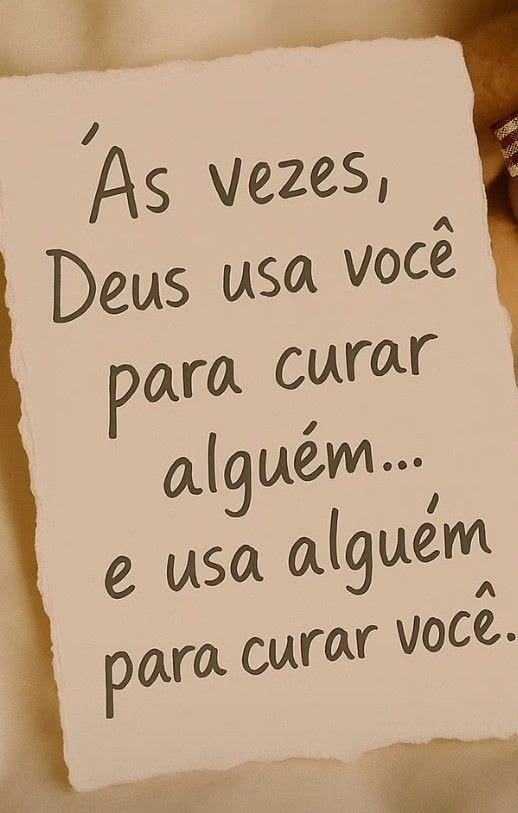 Ás vezes,
Deus usa você
para curar
alguém...
e usa alguém
para curar você.